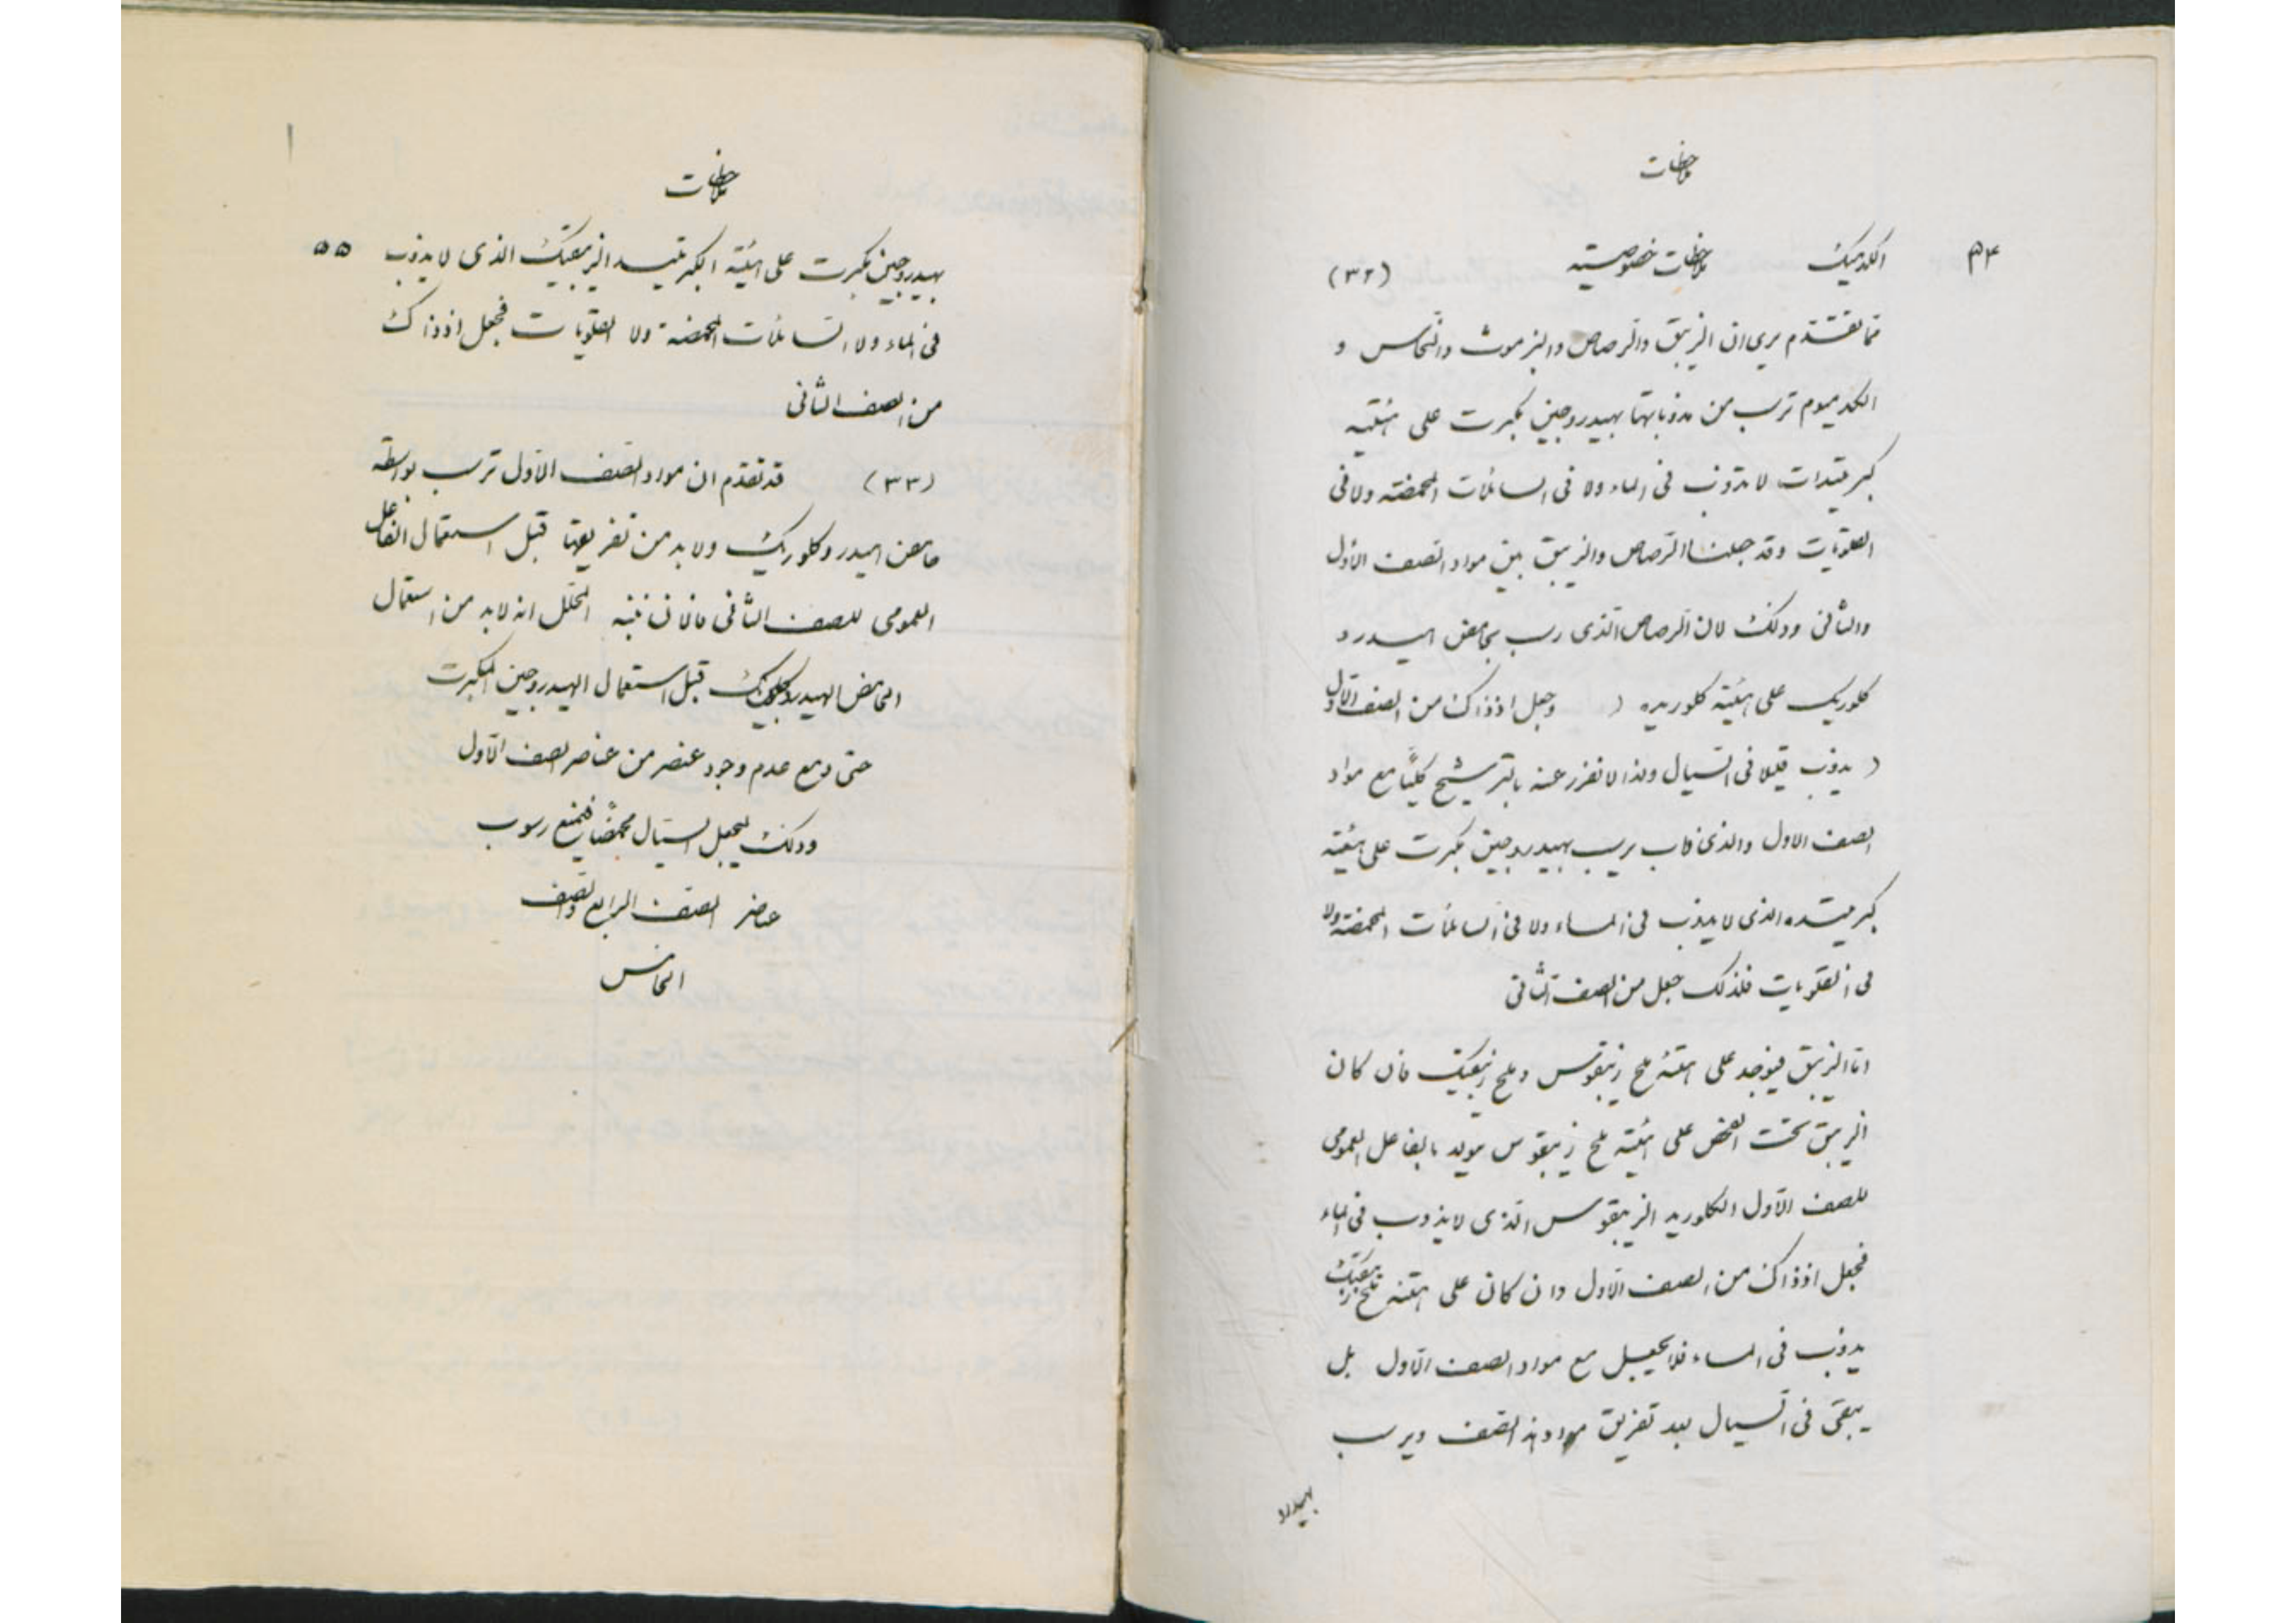 ملاحظات
٥٤ الكدميك ملاحظات خصوصية (٣٢)
مما تقدم يرى ان الزيبق والرصاص والبزموث والنحاس و
الكدميوم ترسب من مذوباتها بهيدروجين مكبرت على هيئة
كبريتيدات لا تذوب فى الماء ولا فى السائلات المحمضة ولا فى
القلويات وقد جعلنا الرصاص والزيبق بين مواد الصف الاول
والثانى وذلك لان الرصاص الذى رسب بحامض الهيدرو
كلوريك على هيئة كلوريده ( وجعل اذ ذاك من الصف الاول
) يذوب قليلا فى السيال ولذا لا تفرز عنه بالترشيح كليًا مع مواد
الصف الاول والذى ذاب يرسب بهيدروجين مكبرت على هيئة
كبريتيده الذى لا يذوب فى الماء ولا فى السائلات المحمضة ولا
فى القلويات فلذلك جعل من الصف الثانى
اما الزيبق فيوجد على هيئة ملح زيبقوس وملح زيبقيك فان كان
الزيبق تحت الفحص على هيئة ملح زيبقوس يولد بالفاعل العمومى
للصف الاول الكلوريد الزيبقوس الذى لا يذوب فى الماء
فجعل اذ ذاك من الصف الاول وان كان على هيئة ملح زيبقيك
يذوب فى الماء فلا يجعل مع مواد الصف الاول بل
يبقى فى السيال بعد تفريق مواد هذا الصف ويرسب
بهيدرو
ملاحظات
بهيدروجين مكبرت على هيئة الكبريتيد الزيبقيك الذى لا يذوب ٥٥
فى الماء ولا السائلات المحمضة ولا القلويات فجعل اذ ذاك
من الصف الثانى
(٣٣) قد تقدم ان مواد الصف الاول ترسب بواسطة
حامض الهيدروكلوريك ولا بد من تفريقها قبل استعمال الفاعل
العمومى للصف الثانى فالان ننبه المحلل انه لا بد من استعمال
الحامض الهيدروكلوريك قبل استعمال الهيدروجين المكبرت
حتى ومع عدم وجود عنصر من عناصر الصف الاول
وذلك ليجعل السيال محمضًا فيمنع رسوب
عناصر الصف الرابع والصف
الخامس